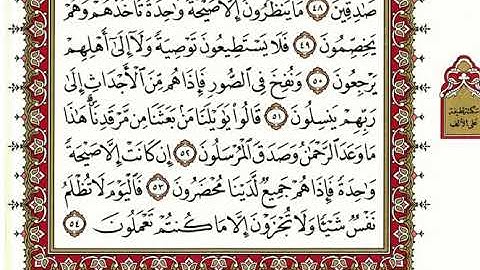 صَادِقِينَ ٤٨ مَا يَنظُرُونَ إِلَّا صَيْحَةً وَاحِدَةً تَأْخُذُهُمْ وَهُمْ
يَخِصِّمُونَ ٤٩ فَلَا يَسْتَطِيعُونَ تَوْصِيَةً وَلَا إِلَىٰ أَهْلِهِمْ
يَرْجِعُونَ ٥٠ وَنُفِخَ فِي الصُّورِ فَإِذَا هُم مِّنَ الْأَجْدَاثِ إِلَىٰ
رَبِّهِمْ يَنسِلُونَ ٥١ قَالُوا يَا وَيْلَنَا مَن بَعَثَنَا مِن مَّرْقَدِنَا ۜ هَٰذَا
مَا وَعَدَ الرَّحْمَٰنُ وَصَدَقَ الْمُرْسَلُونَ ٥٢ إِن كَانَتْ إِلَّا صَيْحَةً
وَاحِدَةً فَإِذَا هُمْ جَمِيعٌ لَّدَيْنَا مُحْضَرُونَ ٥٣ فَالْيَوْمَ لَا تُظْلَمُ
نَفْسٌ شَيْئًا وَلَا تُجْزَوْنَ إِلَّا مَا كُنتُمْ تَعْمَلُونَ ٥٤
سكتة لطيفة
على الألف